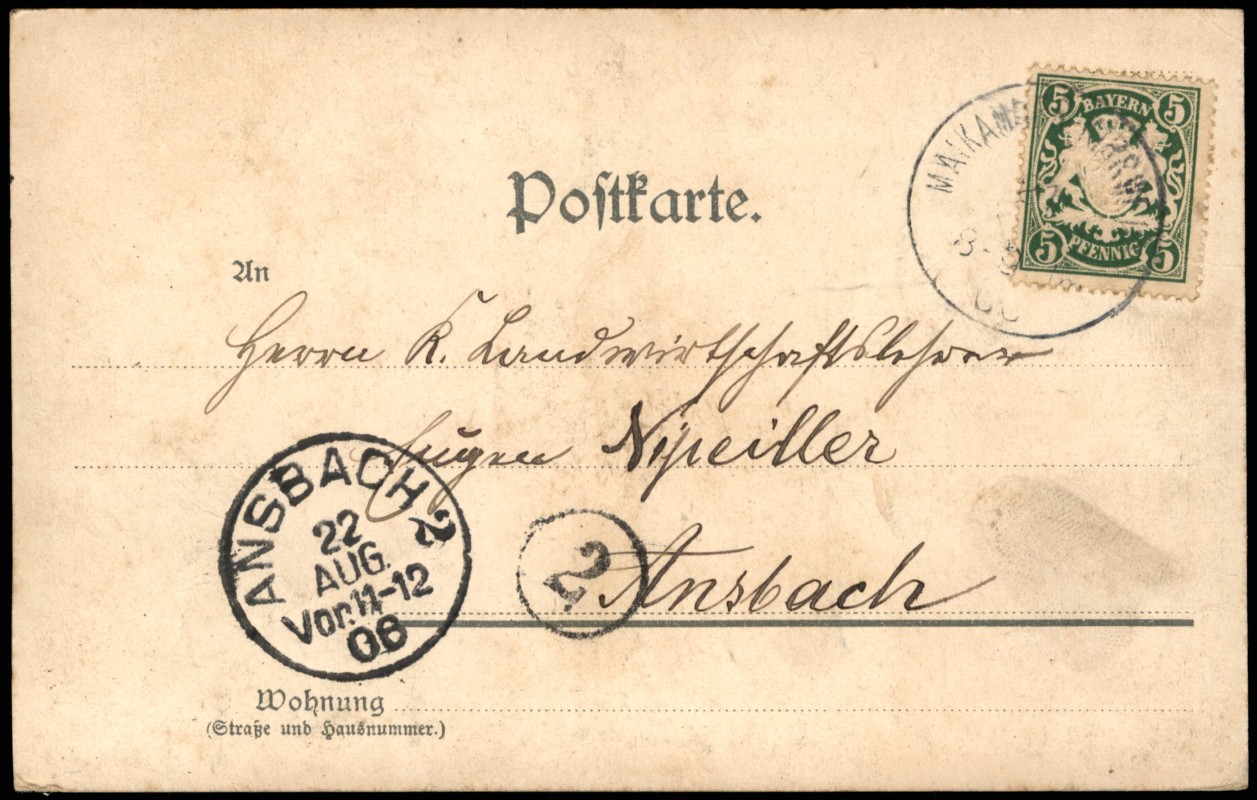 5 BAYERN 5
5 PFENNIG 5
8-9
Postkarte.
An
Herrn K. Landwirtschaftslehrer
Eugen
Ansbach
2
ANSBACH 2
22
AUG.
Vor.11-12
06
Wohnung
(Straße und Hausnummer.)